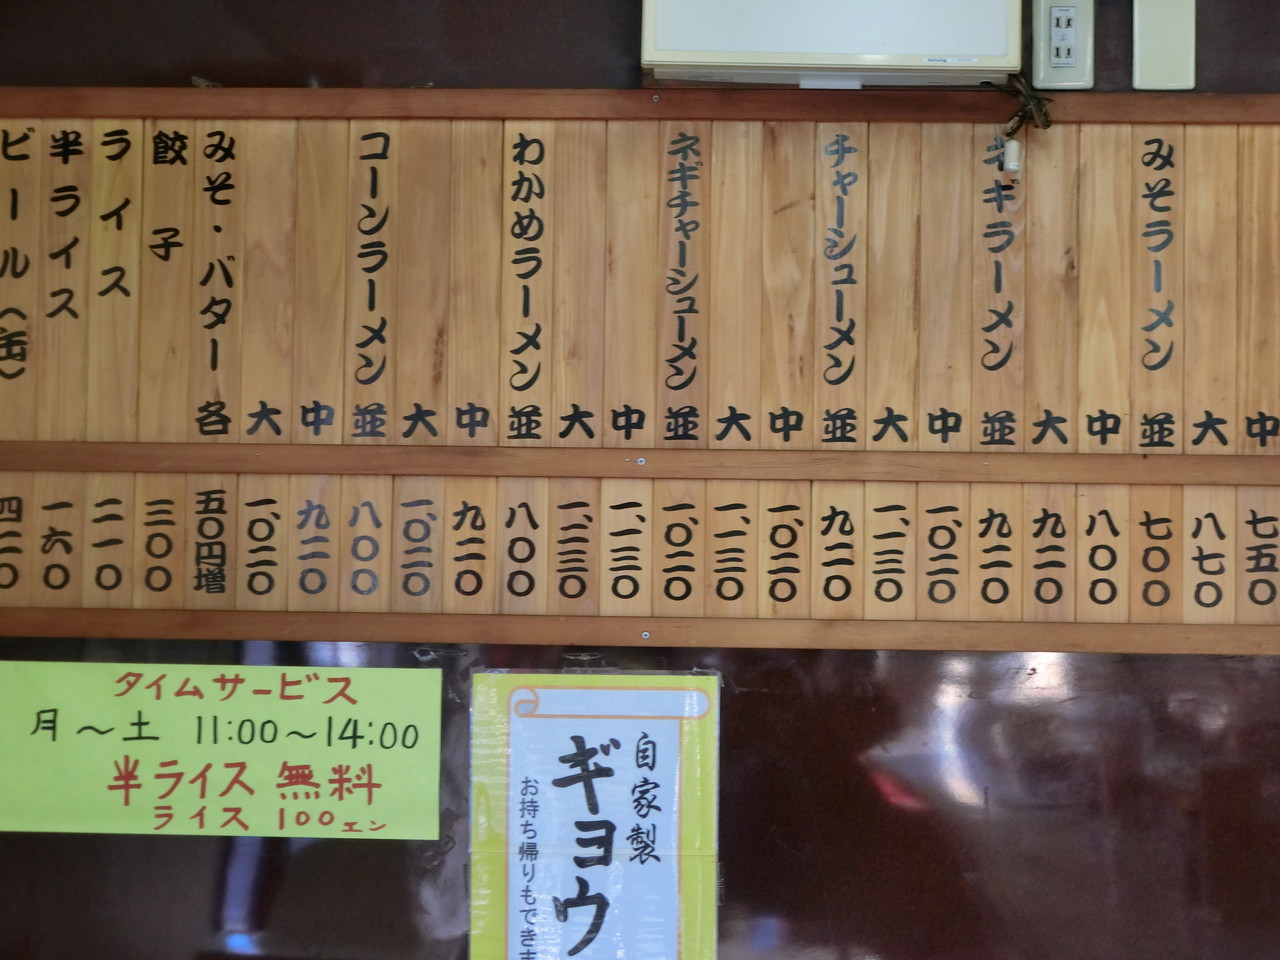 中 七五〇
大 八七〇
みそラーメン 並 七〇〇
中 八〇〇
大 九二〇
ネギラーメン 並 九二〇
中 一、〇二〇
大 一、一三〇
チャーシューメン 並 九二〇
中 一、〇二〇
大 一、一三〇
ネギチャーシューメン 並 一、〇二〇
中 一、一三〇
大 一、二三〇
わかめラーメン 並 八〇〇
中 九二〇
大 一、〇二〇
コーンラーメン 並 八〇〇
中 九二〇
大 一、〇二〇
みそ・バター 各 五〇円増
餃子 三〇〇
ライス 二一〇
半ライス 一六〇
ビール(缶) 四二〇
タイムサービス
月〜土 11:00〜14:00
半ライス 無料
ライス 100エン
自家製
ギョウ
お持ち帰りもでき